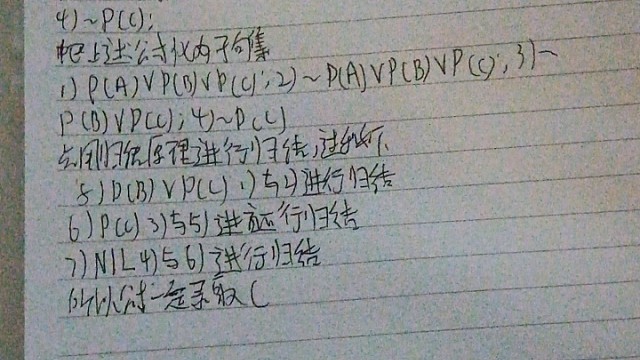 4) ~P(C);
把上述公式化为子句集
1) P(A)∨P(B)∨P(C); 2) ~P(A)∨P(B)∨P(C); 3) ~
P(B)∨P(C); 4) ~P(C)
归结原理进行归结,过程如下
5) P(B)∨P(C) 1)与2)进行归结
6) P(C) 3)与5)进行归结
7) NIL 4)与6)进行归结
所以公司一定录取C